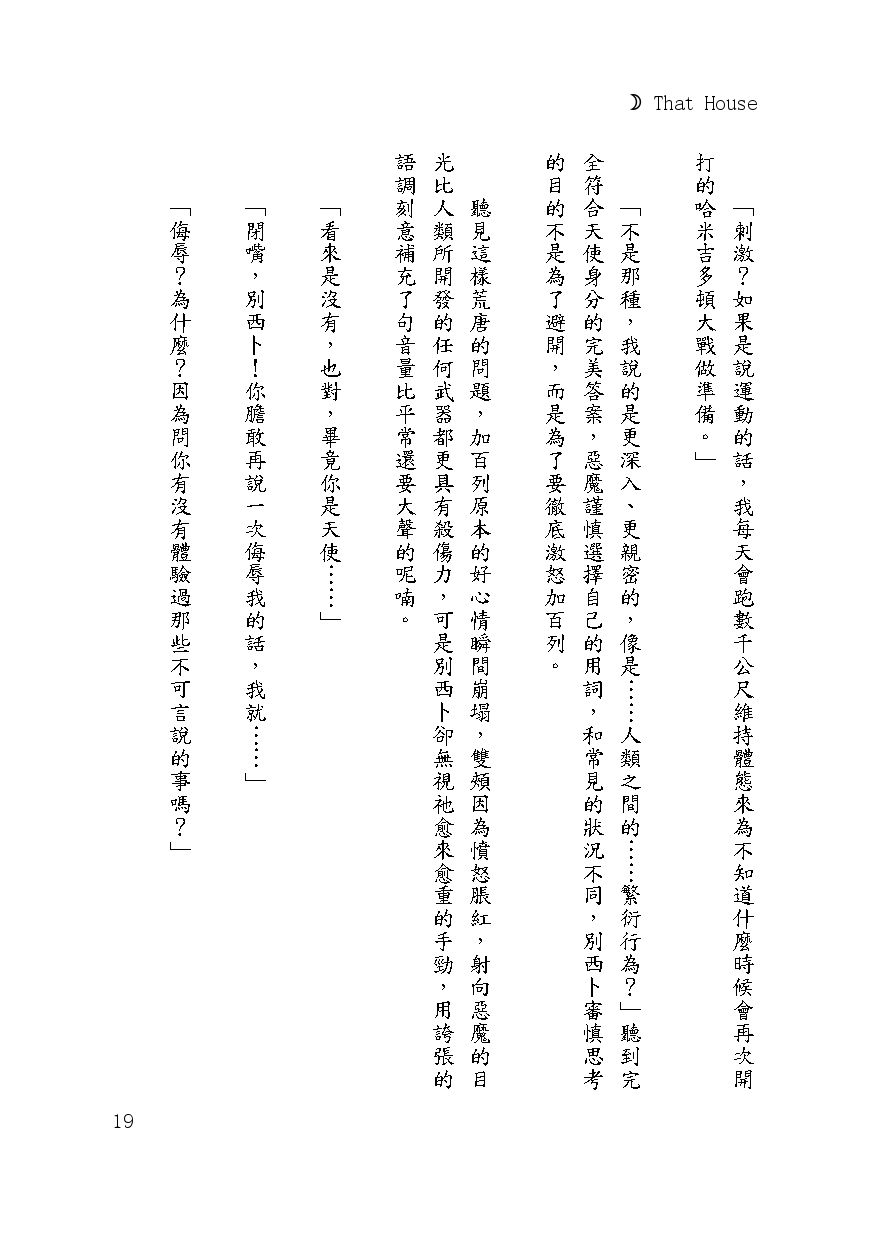 ☽ That House
「刺激？如果是說運動的話，我每天會跑數千公尺維持體態來為不知道什麼時候會再次開
打的哈米吉多頓大戰做準備。」
「不是那種，我說的是更深入、更親密的，像是……人類之間的……繁衍行為？」聽到完
全符合天使身分的完美答案，惡魔謹慎選擇自己的用詞，和常見的狀況不同，別西卜審慎思考
的目的不是為了避開，而是為了要徹底激怒加百列。
聽見這樣荒唐的問題，加百列原本的好心情瞬間崩塌，雙頰因為憤怒脹紅，射向惡魔的目
光比人類所開發的任何武器都更具有殺傷力，可是別西卜卻無視祂愈來愈重的手勁，用誇張的
語調刻意補充了句音量比平常還要大聲的呢喃。
「看來是沒有，也對，畢竟你是天使……」
「閉嘴，別西卜！你膽敢再說一次侮辱我的話，我就……」
「侮辱？為什麼？因為問你有沒有體驗過那些不可言說的事嗎？」
19